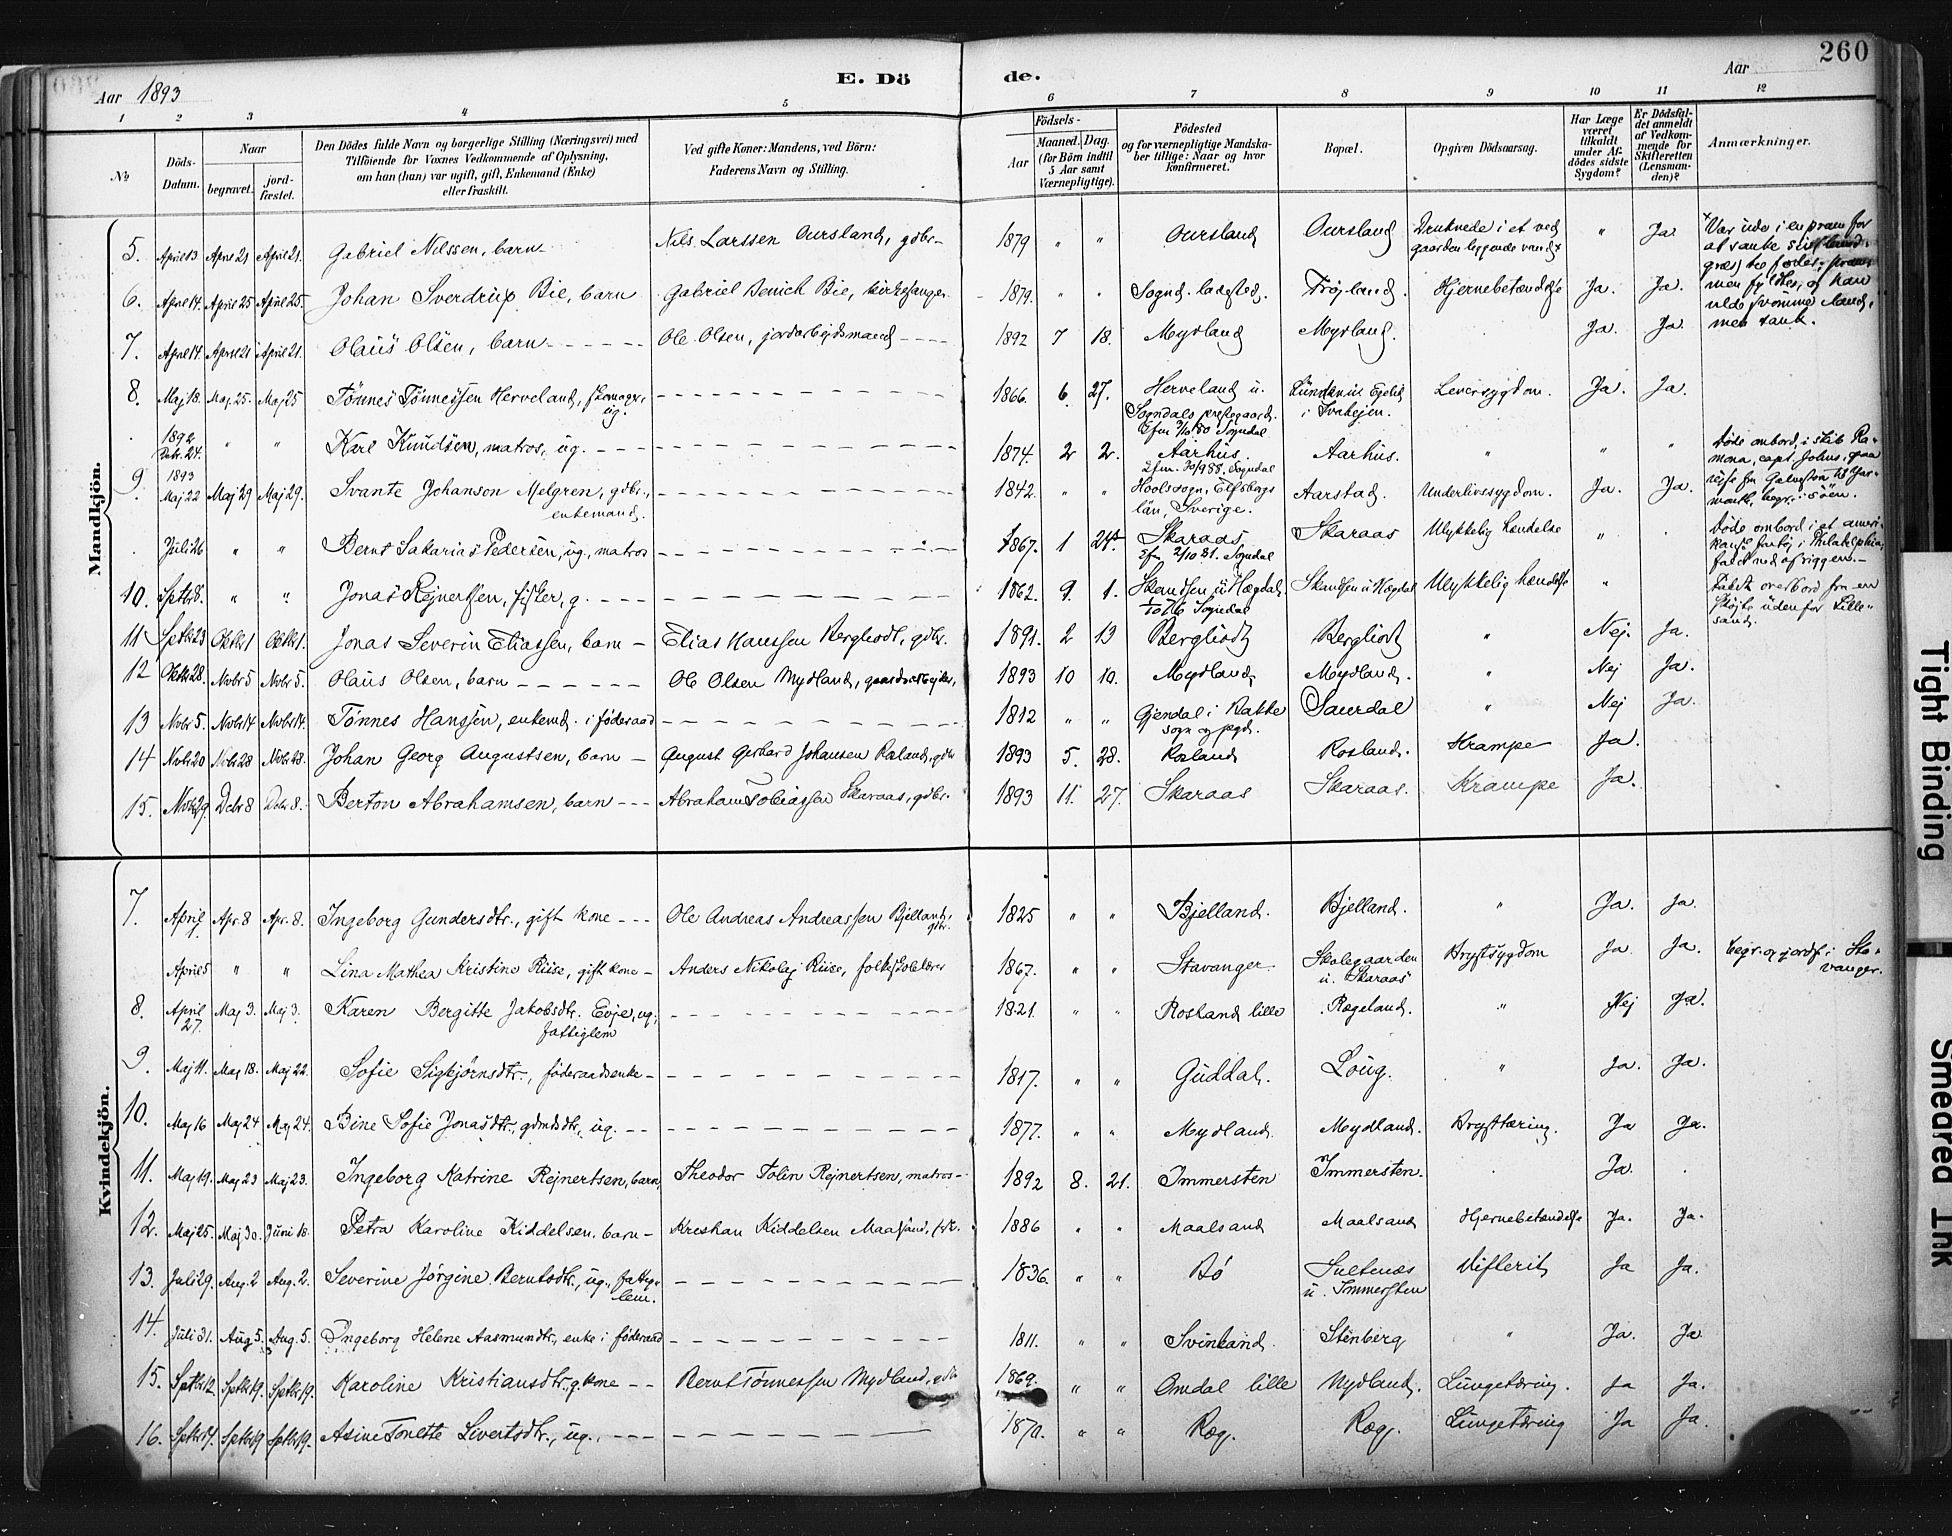 260
Aar 1893
E. Dö
de.
Aar
1 2 3 4 5 6 7 8 9 10 11 12
№
Döds-Datum.
Naar
begravet.
jord-fæstet.
Den Dödes fulde Navn og borgerlige Stilling (Næringsvei) med
Tilföiende for Voxnes Vedkommende af Oplysning,
om han (hun) var ugift, gift, Enkemand (Enke)
eller fraskilt.
Ved gifte Koner: Mandens, ved Börn:
Faderens Navn og Stilling.
Födsels-
Aar
Maaned. Dag.
(for Börn indtil
5 Aar samt
Værnepligtige).
Födested
og for værnepligtige Mandska-
ber tillige: Naar og hvor
konfirmeret.
Bopæl.
Opgiven Dödsaarsag.
Har Læge
været
tilkaldt
under Af-
dödes sidste
Sygdom?
Er Dödsfal-
det anmeldt
af Vedkom-
mende for
Skifteretten
(Lensman-
den)?
Anmærkninger.
Mandkjön.
5. April 13 April 21 April 21. Gabriel Nilssen, barn Nils Larssen Oursland, gdbr. 1879 " " Oursland Oursland Druknede i et ved gaarden liggende vand x " Ja x Var ude i en pram for at sanke men fyldtes, og han vilde svømme iland, men sank.
6. April 14. April 25 April 25. Johan Sverdrup Bie, barn Gabriel Benich Bie, kirkesanger 1879. " " Sognd. ladested. Frøjland. Hjernebetændelse Ja. Ja.
7. April 14. April 21 April 21. Olaus Olsen, barn Ole Olsen, jordarbejdsmand 1892 7 18. Mydland Mydland. Ja. Ja.
8. Maj 18. Maj 25. Maj 25 Tønnes Tønnessen Herveland, skomager, ug. 1866. 6. 27. Herveland u. Sogndals prestegaard. i Svaaheien. Leversygdom. Ja. Ja.
1892 Dcbr. 24. " " Karl Knudsen, matros, ug. 1874. 2 2. Aarhus. Sogndal Aarhus. " " " Døde ombord i skib Ramona, capt. Johns, paa rejse fra Galveston til Yarmouth, begr. i søen.
9. 1893 Maj 22 Maj 29 Maj 29. Svante Johanson Melgren, gdbr., enkemand. 1842. " " Elfsborgs län, Sverige. Aarstad. Underlivssygdom. Ja. Ja.
Juli 26 " " Bernt Sakarias Pedersen, ug., matros 1867. 1 24. Skaraas, Efm 2/10 81. Sogndal Skaraas Ulykkelig hændelse " Døde ombord i et amerikansk fartøj i Philadelphia, faldt ned af riggen.
10. Sptbr 8. " " Jonas Rejnertsen, fisker, g. 1862. 9. 1. Skandsen u. Hægdal Sogndal Skandsen u. Hægdal Ulykkelig hændelse " Faldt overbord fra en skøjte udenfor Lillesand.
11 Sptbr 23 Oktbr 1 Oktbr 1. Jonas Severin Eliassen, barn Elias Hanssen Bergliodt, gdbr. 1891. 2 13 Bergliodt Bergliodt " Nej. Ja.
12 Oktbr 28. Nvbr 5 Nvbr 5. Olaus Olsen, barn Ole Olsen Mydland, 1893 10 10. Mydland, Mydland. " Nej Ja.
13 Nvbr 5. Nvbr 14 Nvbr 14. Tønnes Hanssen, enkemd. i føderaad 1812 " " Gjendal i Bakke sogn og pgd. Saurdal " Nej Ja.
14 Nvbr 20 Nvbr 28 Nvbr 28. Johan Georg Augustsen, barn August Gerhard Johansen Rosland, gdbr 1893 5. 28. Rosland Rosland. Krampe Ja.
15. Nvbr 29. Dcbr 8 Dcbr 8. Berton Abrahamsen, barn Abraham Tobiassen Skaraas, gdbr. 1893 11. 27. Skaraas Skaraas. Krampe Ja.
Kvindekjön.
7. April 1. Apr. 8 Apr. 8. Ingeborg Gundersdtr., gift kone Ole Andreas Andreassen Bjelland, gdbr. 1825 " " Bjelland. Bjelland. " Ja. Ja.
April 5 " " Lina Mathea Kristine Riise, gift kone Anders Nikolaj Riise, folkeskolelærer 1867. " " Stavanger. Skolegaarden u. Skaraas Brystsygdom Ja. Ja. begr. og jordf. i Stavanger.
8. April 27. Maj 3. Maj 3. Karen Bergitte Jakobsdtr. Evje, ug., fattiglem 1821. " " Rosland lille Rægeland. " Nej Ja.
9. Maj 11. Maj 18. Maj 22. Sofie Sigbjørnsdtr., føderaadsenke 1817. " " Guddal. Loug. " Ja. Ja.
10. Maj 16 Maj 24 Maj 24. Bine Sofie Jonasdtr., gdmdsdtr., ug. 1877. " " Mydland. Mydland. Brysttæring. Ja Ja.
11. Maj 19. Maj 23 Maj 23. Ingeborg Katrine Rejnertsen, barn, Theodor Tolin Rejnertsen, matros 1892 8. 21. Immersten Immersten. Ja.
12. Maj 25. Maj 30. Juni 18. Petra Karoline Kiddelsen, barn Kristian Kiddelsen Maalsand, 1886 " " Maalsand Maalsand Hjernebetændelse Ja. Ja.
13. Juli 29. Aug. 2 Aug. 2. Severine Jørgine Berntsdtr., ug., fattiglem. 1836. " " Bø Sultenæs u. Immersten Difterit Ja Ja.
14. Juli 31. Aug 5. Aug. 5. Ingeborg Helene Aasmundtr., enke i føderaad 1811. " " Svinland. Stenberg " Ja. Ja
15. Sptbr 12. Sptbr 19. Sptbr 19. Karoline Kristiansdtr., g. kone Bernt Tønnessen Mydland, gdbr 1869. " " Omdal lille Mydland. Lungetæring. Ja Ja.
16. Sptbr 14. Sptbr 19 Sptbr 19. Asine Tonette Sivertsdtr., ug. 1870. " " Ræg. Ræg. Lungetæring Ja Ja.
Tight Binding
Smeared Ink